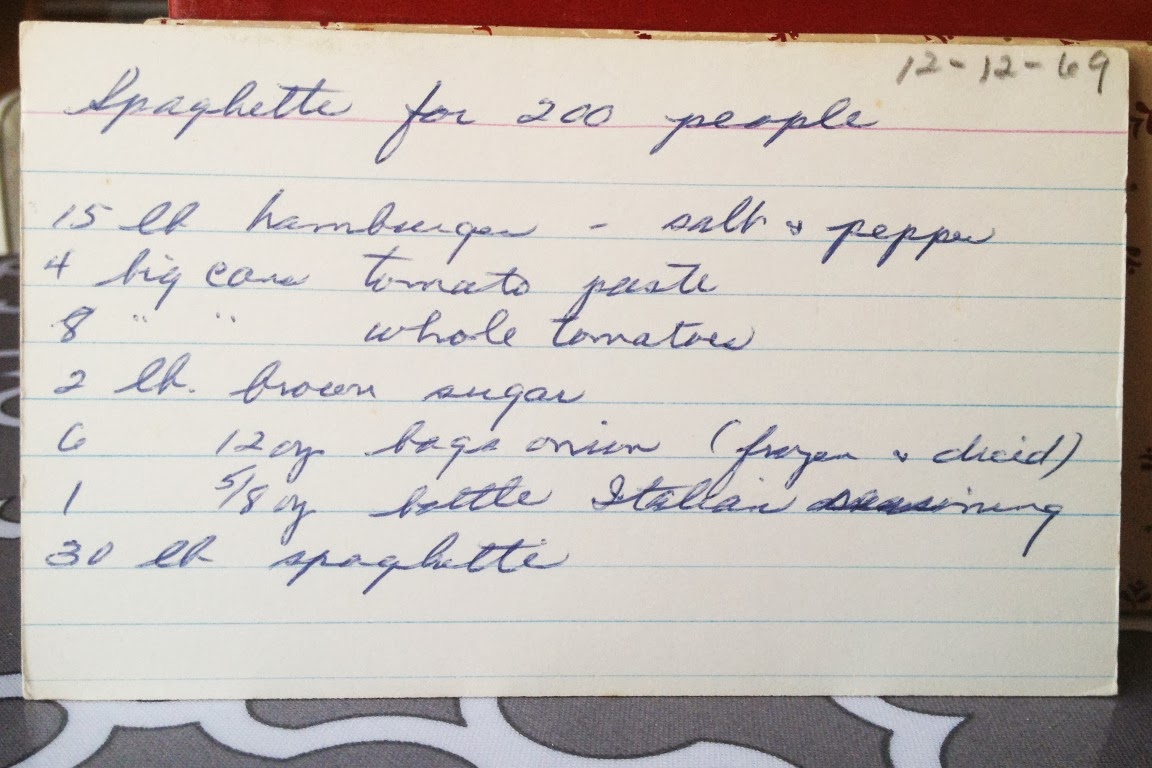 12-12-69
Spaghette for 200 people
15 lb hamburger - salt & pepper
4 big cans tomato paste
8 " " whole tomatoes
2 lb. brown sugar
6 12 oz bags onion (frozen & diced)
1 5/8 oz bottle Italian seasoning
30 lb spaghette